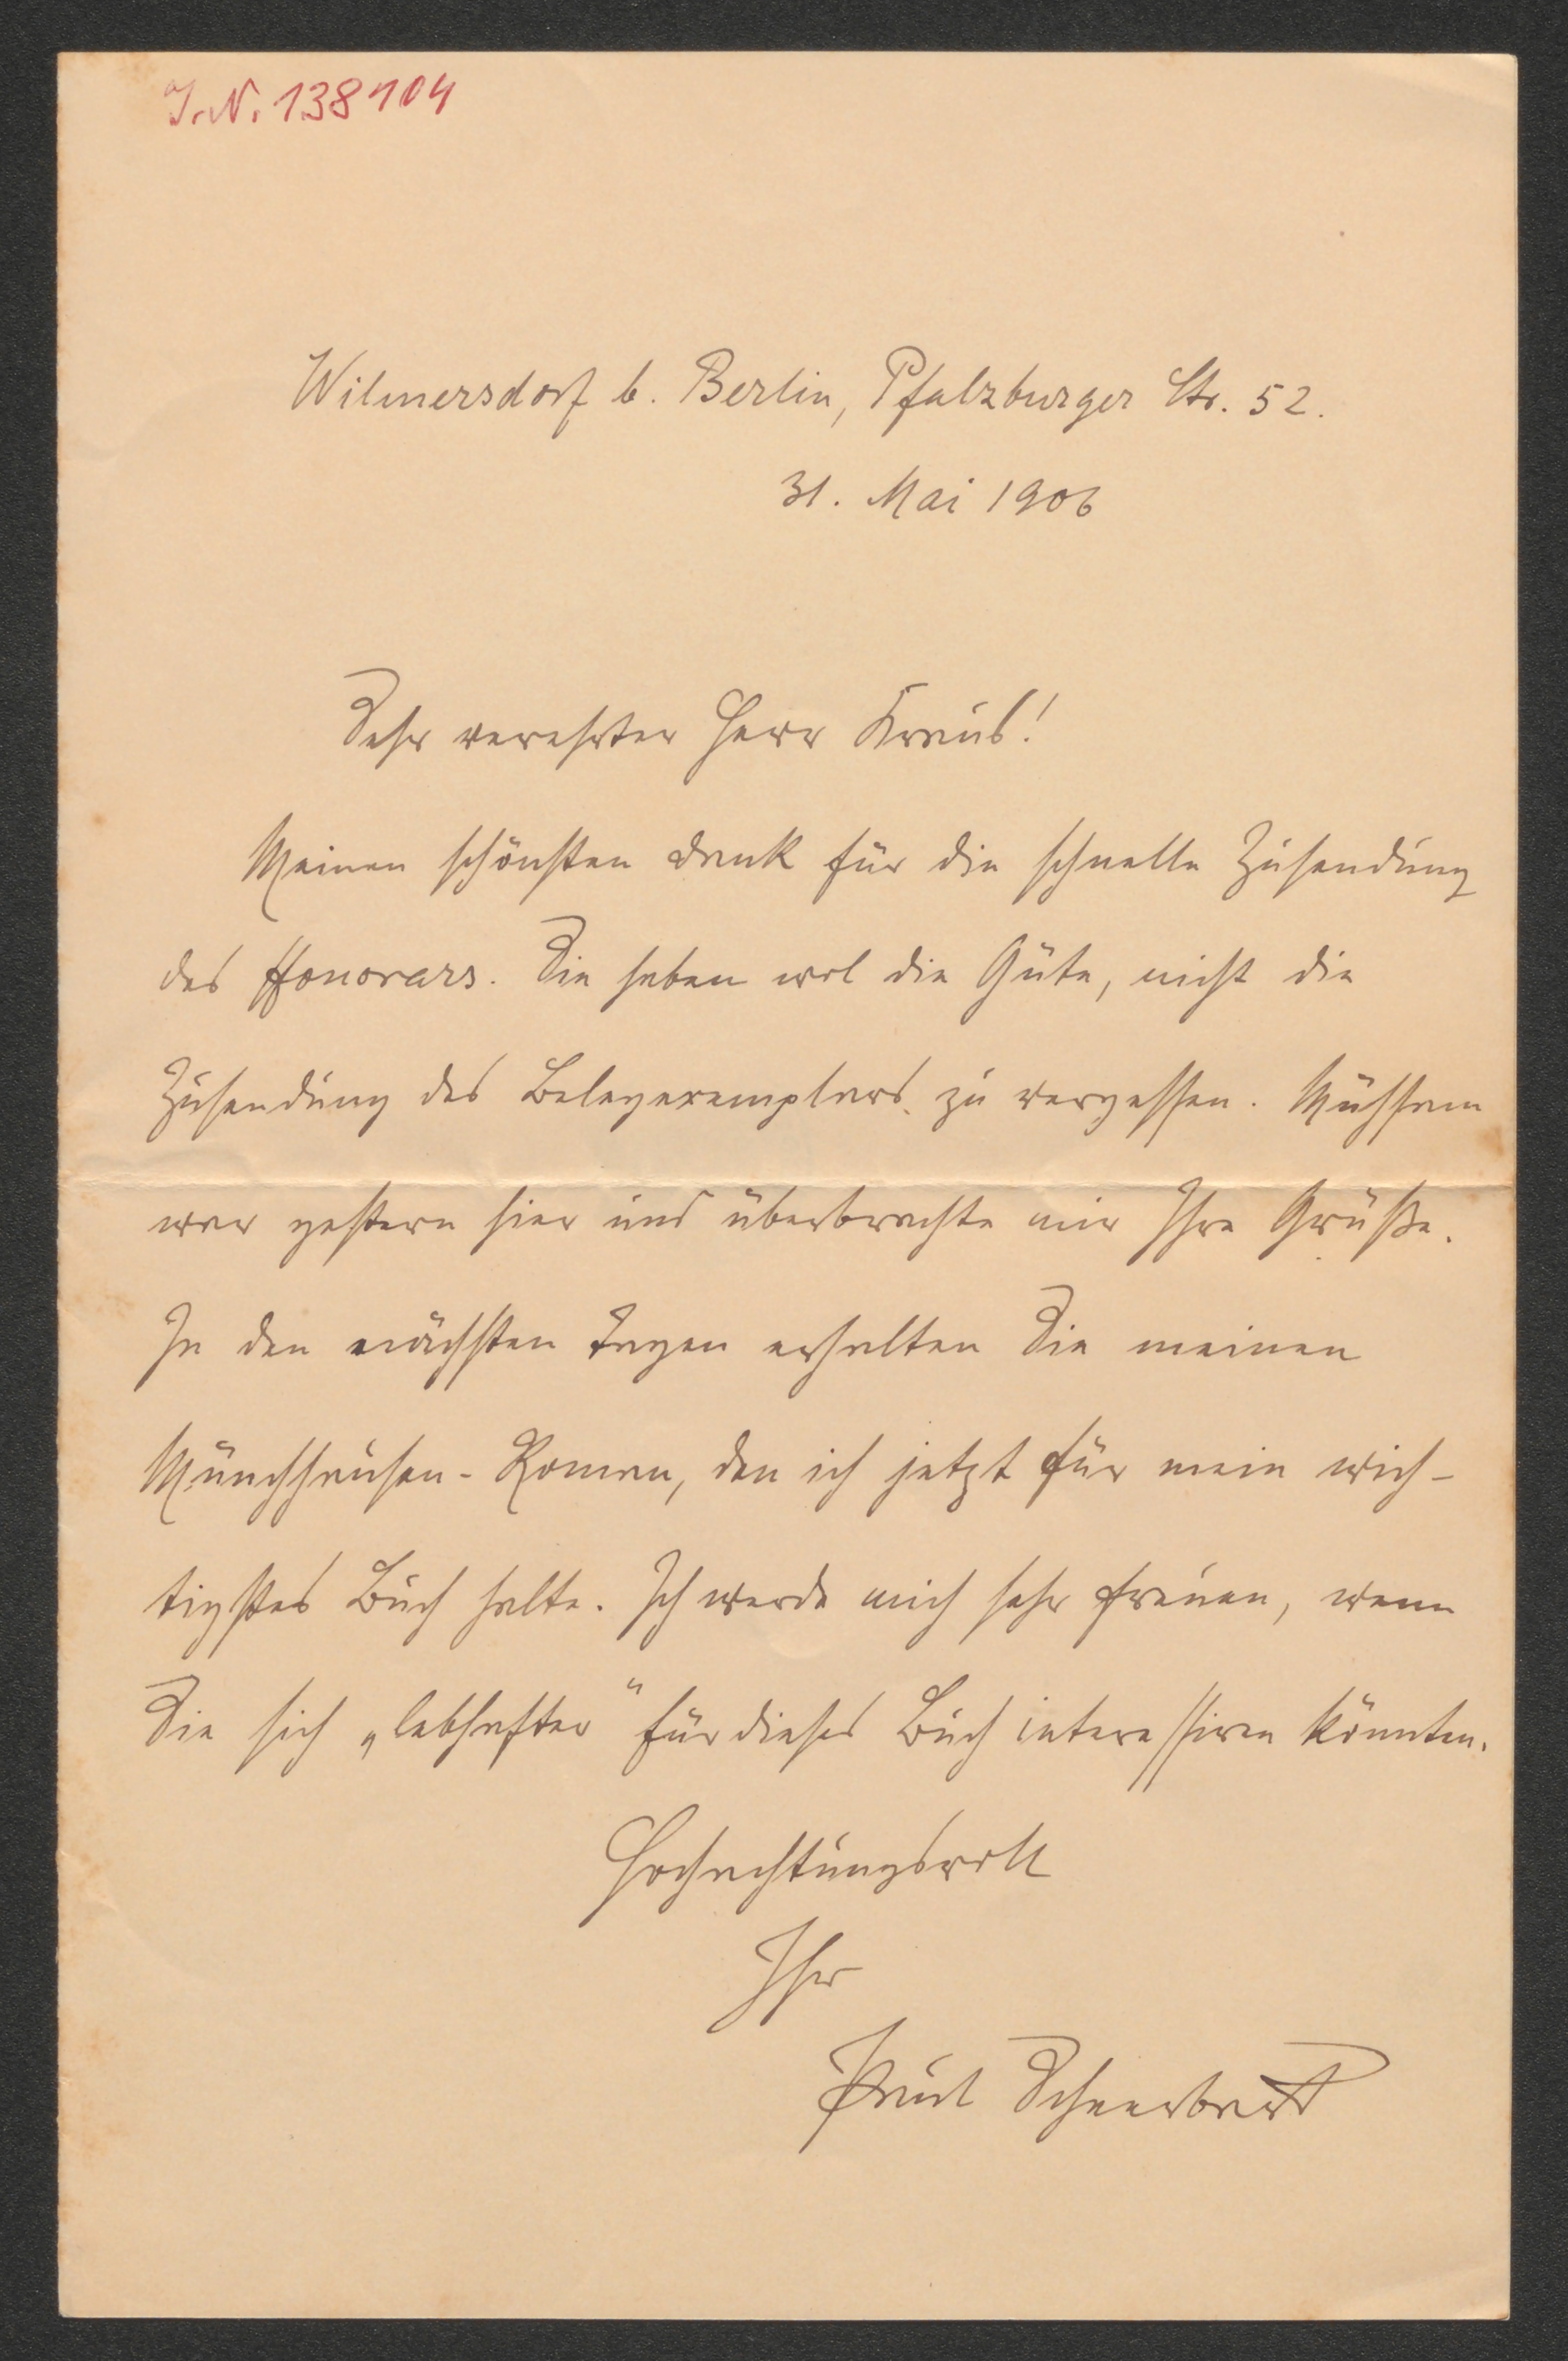 I.N. 138104
Wilmersdorf b. Berlin, Pfalzburger Str. 52.
31. Mai 1906
Sehr verehrter Herr Kraus!
Meinen schönsten Dank für die schnelle Zusendung
des Honorars. Sie haben wol die Güte, nicht die
Zusendung des Belegexemplars zu vergessen. Mühsam
war gestern hier und überbrachte mir Ihre Grüße.
In den nächsten Tagen erhalten Sie meinen
Münchhausen-Roman, den ich jetzt für mein wich-
tigstes Buch halte. Ich werde mich sehr freuen, wenn
Sie sich „lebhafter" für dieses Buch interessiren könnten.
Hochachtungsvoll
Ihr
Paul Scheerbart